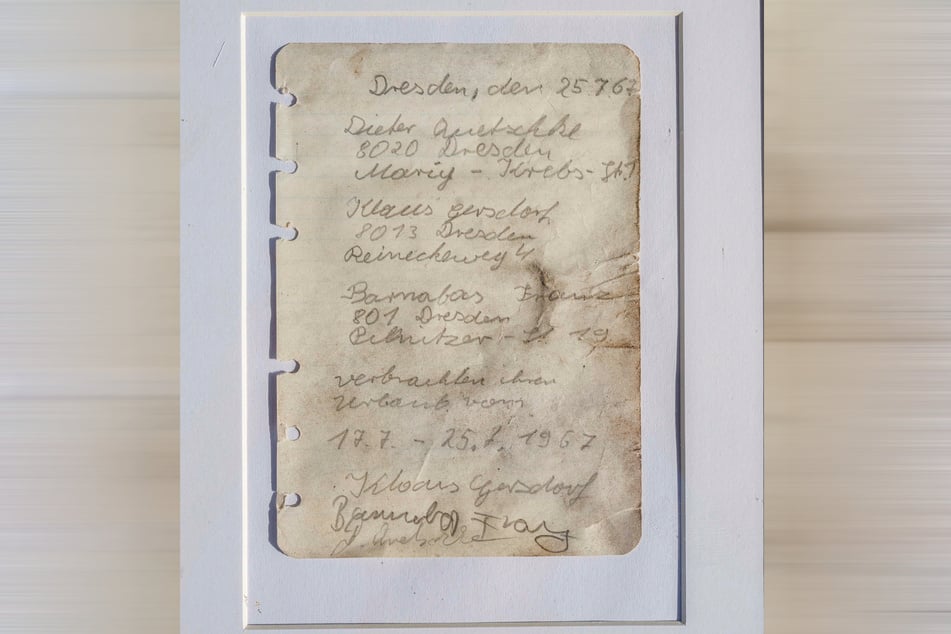 Dresden, den 25.7.67
Dieter Quetschke
8020 Dresden
Mariy - Krebs - St. 1
Klaus Gersdorf
8013 Dresden
Reineckeweg 4
Barnabas Franz
801 Dresden
Pilnitzer - St. 19
verbrachten ihren
Urlaub vom
17.7. - 25.7. 1967
Klaus Gersdorf
Barnabas Franz
D. Quetschke